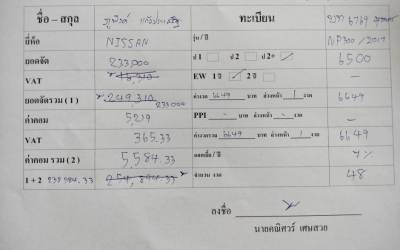 ชื่อ – สกุล ทะเบียน 6769
ยี่ห้อ NISSAN รุ่น / ปี NP300 / 2017
ยอดจัด 233,000 ป 1 ป 2 ป 2+ 6500
VAT EW 1 ปี 2 ปี
ยอดจัดรวม ( 1 ) 233,000 ค่างวด 6649 บาท ล่วงหน้า 1 งวด 6649
ค่าคอม 5219 PPI - บาท ล่วงหน้า - งวด
VAT 365.33 ค่างวดรวม 6649 บาท ล่วงหน้า 1 งวด 6649
ค่าคอม รวม ( 2 ) 5,584.33 ดอกเบี้ย / ปี
1 + 2 238584.33 จำนวน งวด 48
ลงชื่อ
นายคณิศวร์ เศษสวย